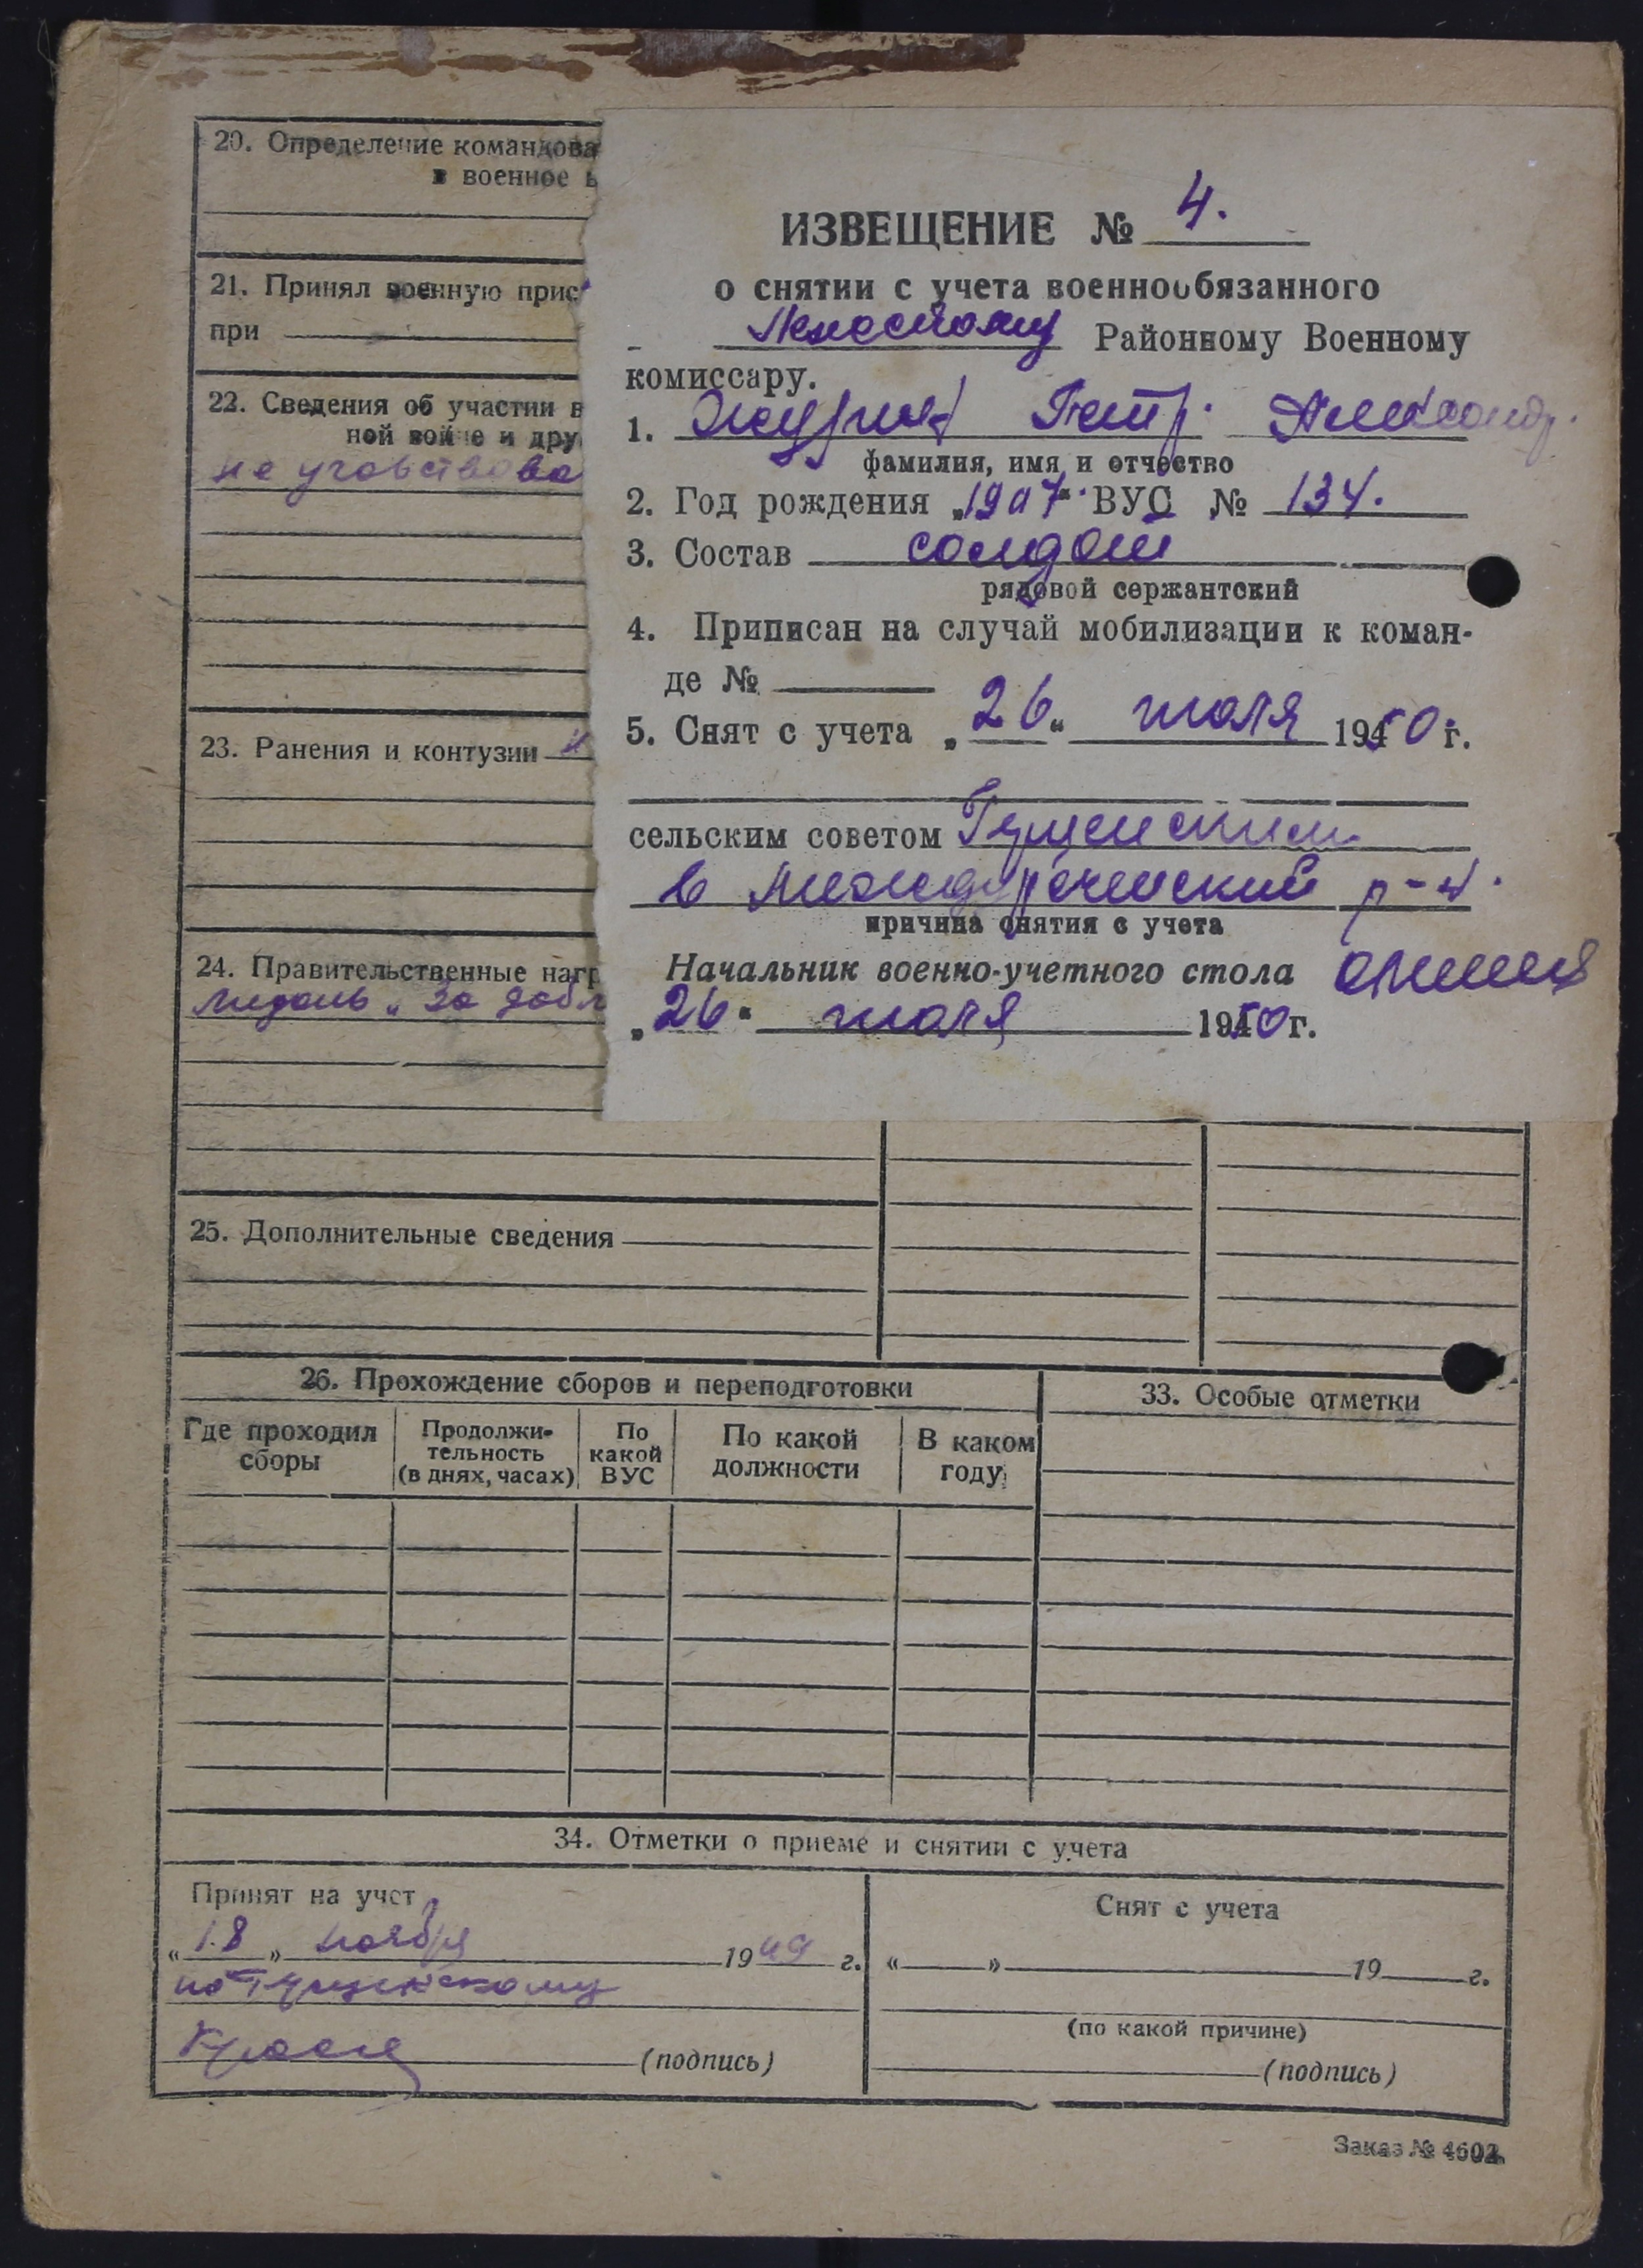 20. Определение командова
в военное в
21. Принял военную прис
при
22. Сведения об участии в
ной войне и дру
не участвова
23. Ранения и контузии н
24. Правительственные нагр
медаль „За добл
25. Дополнительные сведения
ИЗВЕЩЕНИЕ № 4.
о снятии с учета военнообязанного
Районному Военному
комиссару.
1. Петр. Александр.
фамилия, имя и отчество
2. Год рождения „1907“. ВУС № 134.
3. Состав солдат
рядовой сержантский
4. Приписан на случай мобилизации к коман-
де №
5. Снят с учета „26“ июля 1950 г.
сельским советом Гущенским
в Междуреченский р-н.
причина снятия с учета
Начальник военно-учетного стола
„26“ июля 1950 г.
26. Прохождение сборов и переподготовки
33. Особые отметки
Где проходил сборы
Продолжи-
тельность
(в днях, часах)
По
какой
ВУС
По какой
должности
В каком
году
34. Отметки о приеме и снятии с учета
Принят на учет
«18» ноября 1949 г.
по Гущенскому
(подпись)
Снят с учета
« » 19 г.
(по какой причине)
(подпись)
Заказ № 4602.